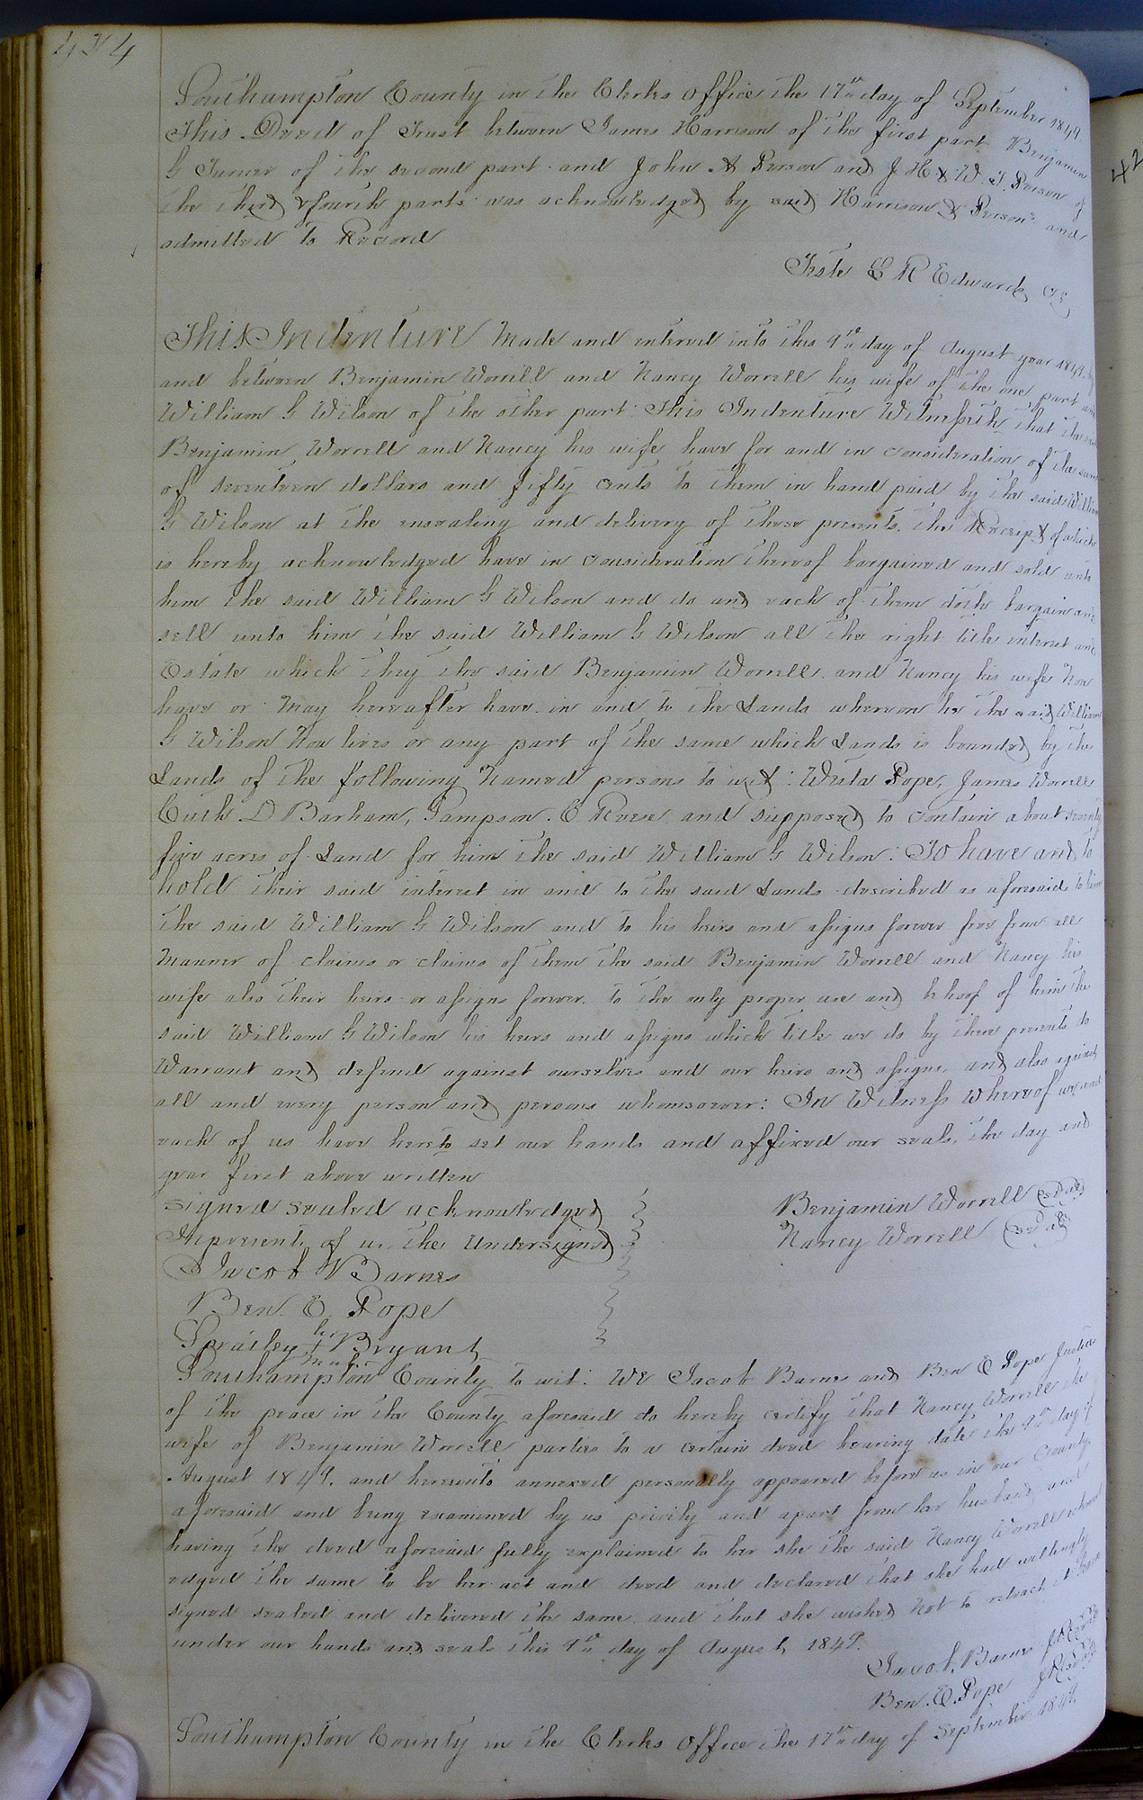 424
Southampton County in the Clerks Office the 17th day of September 1849.
This Deed of Trust between James Harrison of the first part Benjamin
G Turner of the second part and John A Person and J. H & W. T. Person of
the third & fourth parts was acknowledged by said Harrison & Persons and
admitted to Record
Teste L R Edwards CC
This Indenture Made and intered into this 9th day of August year 1849 by
and between Benjamin Worrell and Nancy Worrell his wife of the one part and
William G Wilson of the other part: This Indenture Witnesseth that the said
Benjamin Worrell and Nancy his wife have for and in consideration of the sum
of Seventeen dollars and fifty cents to them in hand paid by the said William
G Wilson at the ensealing and delivery of these presents, the Receipt of which
is hereby acknowledged have in consideration thereof bargained and sold unto
him the said William G Wilson and do and each of them doth bargain and
sell unto him the said William G Wilson all the right title interest and
Estate which they the said Benjamin Worrell and Nancy his wife Now
have or May hereafter have in and to the Lands whereon he the said William
G Wilson Now lives or any part of the same which Lands is bounded by the
Lands of the following Named persons to wit: Pope, James Worrell
D Barham, Sampson C Reese and supposed to contain about seventy
five acres of Land for him the said William G Wilson: To have and to
hold their said interest in and to the said Lands described as aforesaid to him
the said William G Wilson and to his heirs and assigns forever free from all
Manner of claims or claims of them the said Benjamin Worrell and Nancy his
wife also their heirs or assigns forever. to the only proper use and behoof of him the
said William G Wilson his heirs and assigns which title we do by these presents to
Warrant and defend against ourselves and our heirs and assigns and also against
all and every person and persons whomsoever: In Witness Whereof we and
each of us have hereto set our hands and affixed our seals, the day and
year first above written
Signed Sealed acknowledged
Benjamin Worrell (Seal)
In presents of us the Undersigned
Nancy Worrell (Seal)
Jacob Barnes
Ben. E. Pope
his
Spratley + Bryant
mark
Southampton County to wit: We Jacob Barnes and Ben E Pope Justices
of the peace in the County aforesaid do hereby certify that Nancy Worrell the
wife of Benjamin Worrell parties to a certain deed bearing date the 9th day of
August 1849. and hereunto annexed personally appeared before us in our County
aforesaid and being examined by us privily and apart from her husband and
having the deed aforesaid fully explained to her she the said Nancy Worrell acknowl
edged the same to be her act and deed and declared that she had willingly
signed sealed and delivered the same and that she wished Not to retract it Given
under our hands and seals this 9th day of August, 1849.
Jacob, Barnes
Ben. E. Pope
Southampton County in the Clerks Office the 17th day of September 1849
42